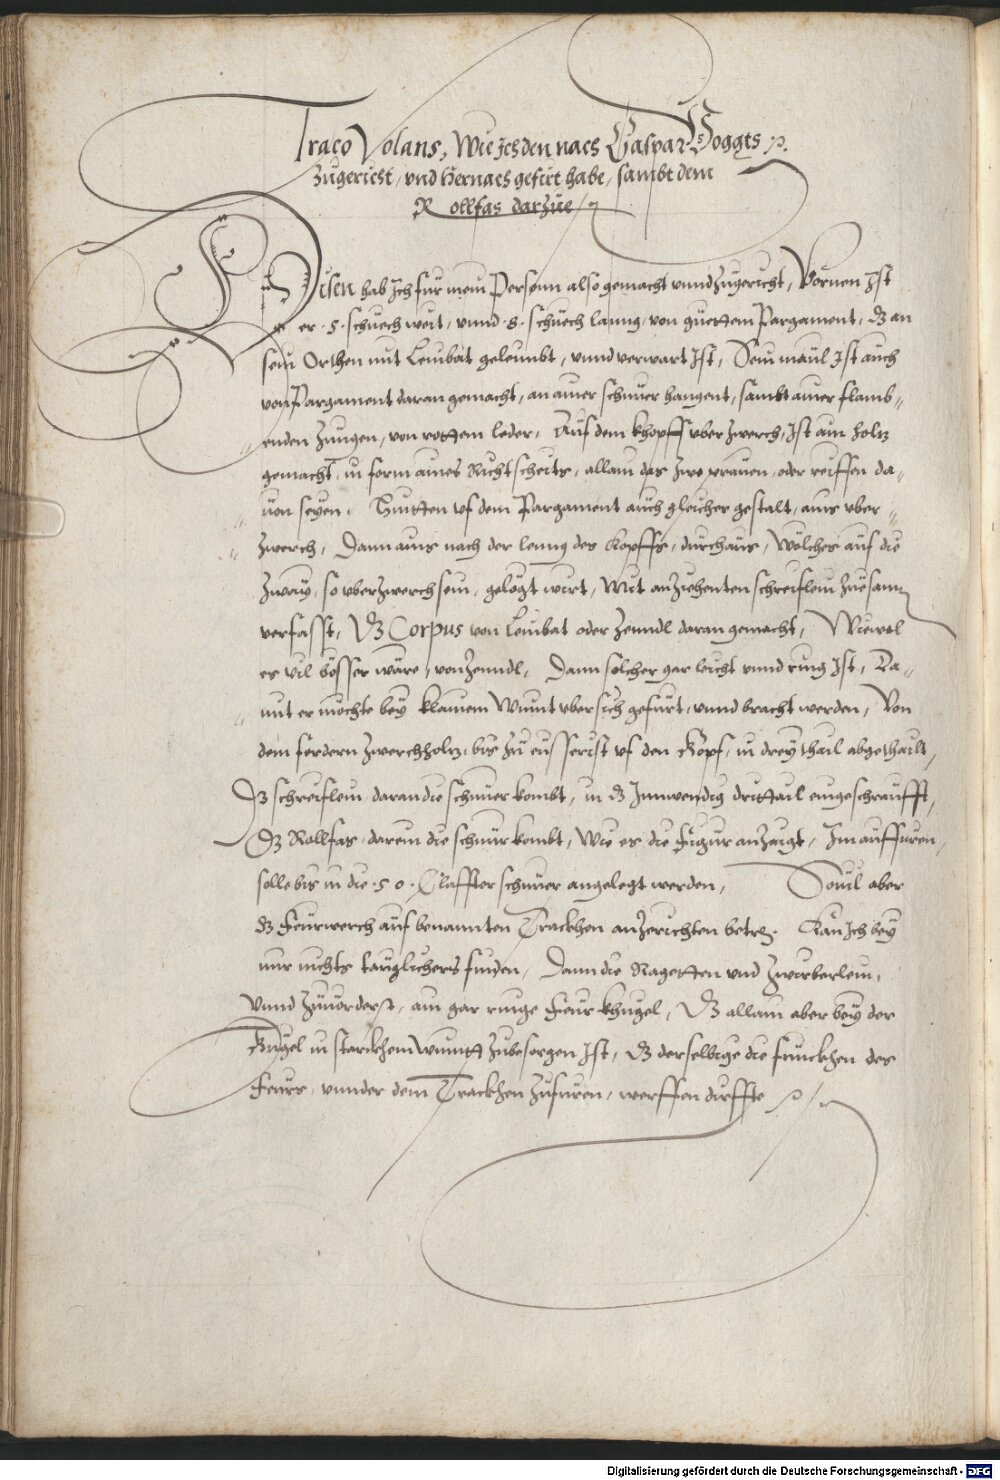 Traco Volans, Wie Ich den nach Caspar Voggts
Zugericht, vnd hernach gefiert habe, sambt dem
Rollfas darzue
Disen hab Ich fur mein Personn also gemacht vnnd zugericht, Vornen Ist
er .5. schuech weit, vnnd .8. schuech lanng, von guettem Pargament, dz an
sein Orthen mit Leinbat geleimbt, vnnd verwart Ist, Sein maul Ist auch
von Pargament daran gemacht, an ainer schnuer hangent, sambt ainer flamb-
enden Zungen, von rottem leder. Auf dem khopff vber zwerch, Ist ain holtz
gemacht, in form aines Richtscheits, allain das zwo oder reiffen da-
uon seyen. Hintten vf dem Pargament auch gleicher gestalt, ains vber-
zwerch, Dann ains nach der leng des Kopffs, durchaus, Wölches auf die
Zway, so vberzwerch sein, gelögt wirt, Mit anziehenten schreiflein zuesam
verfasst, Dz Corpus von Leinbat oder Zenndl daran gemacht, Wiewol
er vil bösser wäre, von Zenndl, Dann solcher gar leicht vnnd ring Ist, Da-
mit er möchte bey klainem Winnt vbersich gefürt, vnnd bracht werden, Von
dem fordern zwerchholtz, bis zu eusserist vf den Kopf, in drey thail abgethailt,
Dz schreiflein daran die schnuer kombt, in dz Innwendig drittail eingeschraufft,
Dz Rollfas, darein die schnur kombt, Wie es die Figur anzaigt, Im auffuren
solle bis in die .50. Claffter schnuer angelegt werden, Souil aber
dz Feurwerch auf benannten Trackhen anzerichten betr. Kan Ich bey
mir nichts tauglichers finden, Dann die Ragetten vnd Zwirberlein,
Vnnd zuuorderst, ain gar ringe Feur khugel, Dz allain aber bey der
Kugel in starckhem Winntt zubesorgen Ist, dz derselbige die funckhen des
Feurs, vnnder dem Trackhen zufuren, werffen durffte
Digitalisierung gefördert durch die Deutsche Forschungsgemeinschaft - DFG